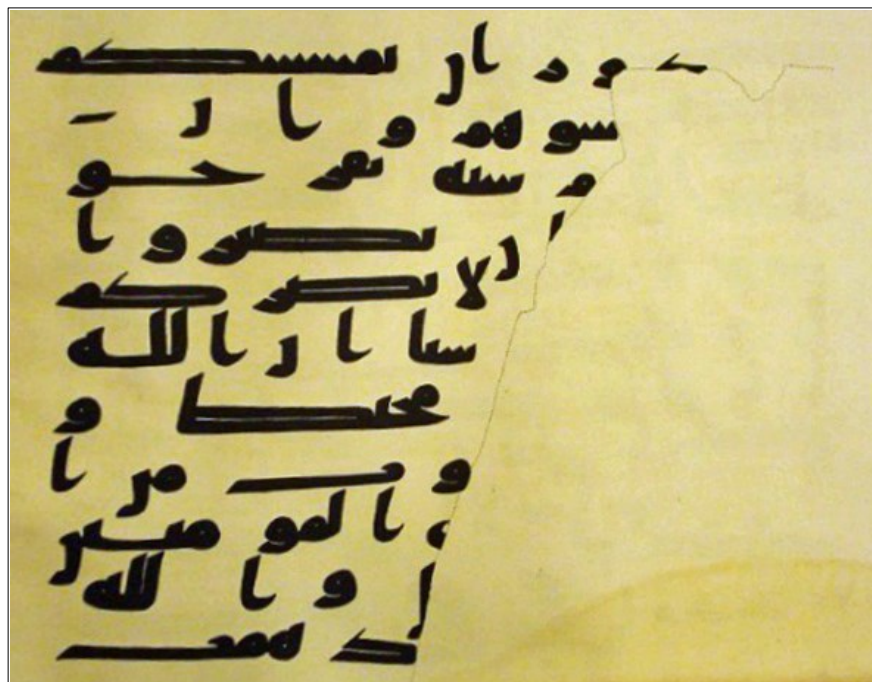 دور ان تمسسكم
تسوهم وان تـ
ـم سيه يفرحو
ان تصبروا
لا يضركم
شيا ان الله
محيط و
وت من ا
المومنين
ل والله
ذ همت